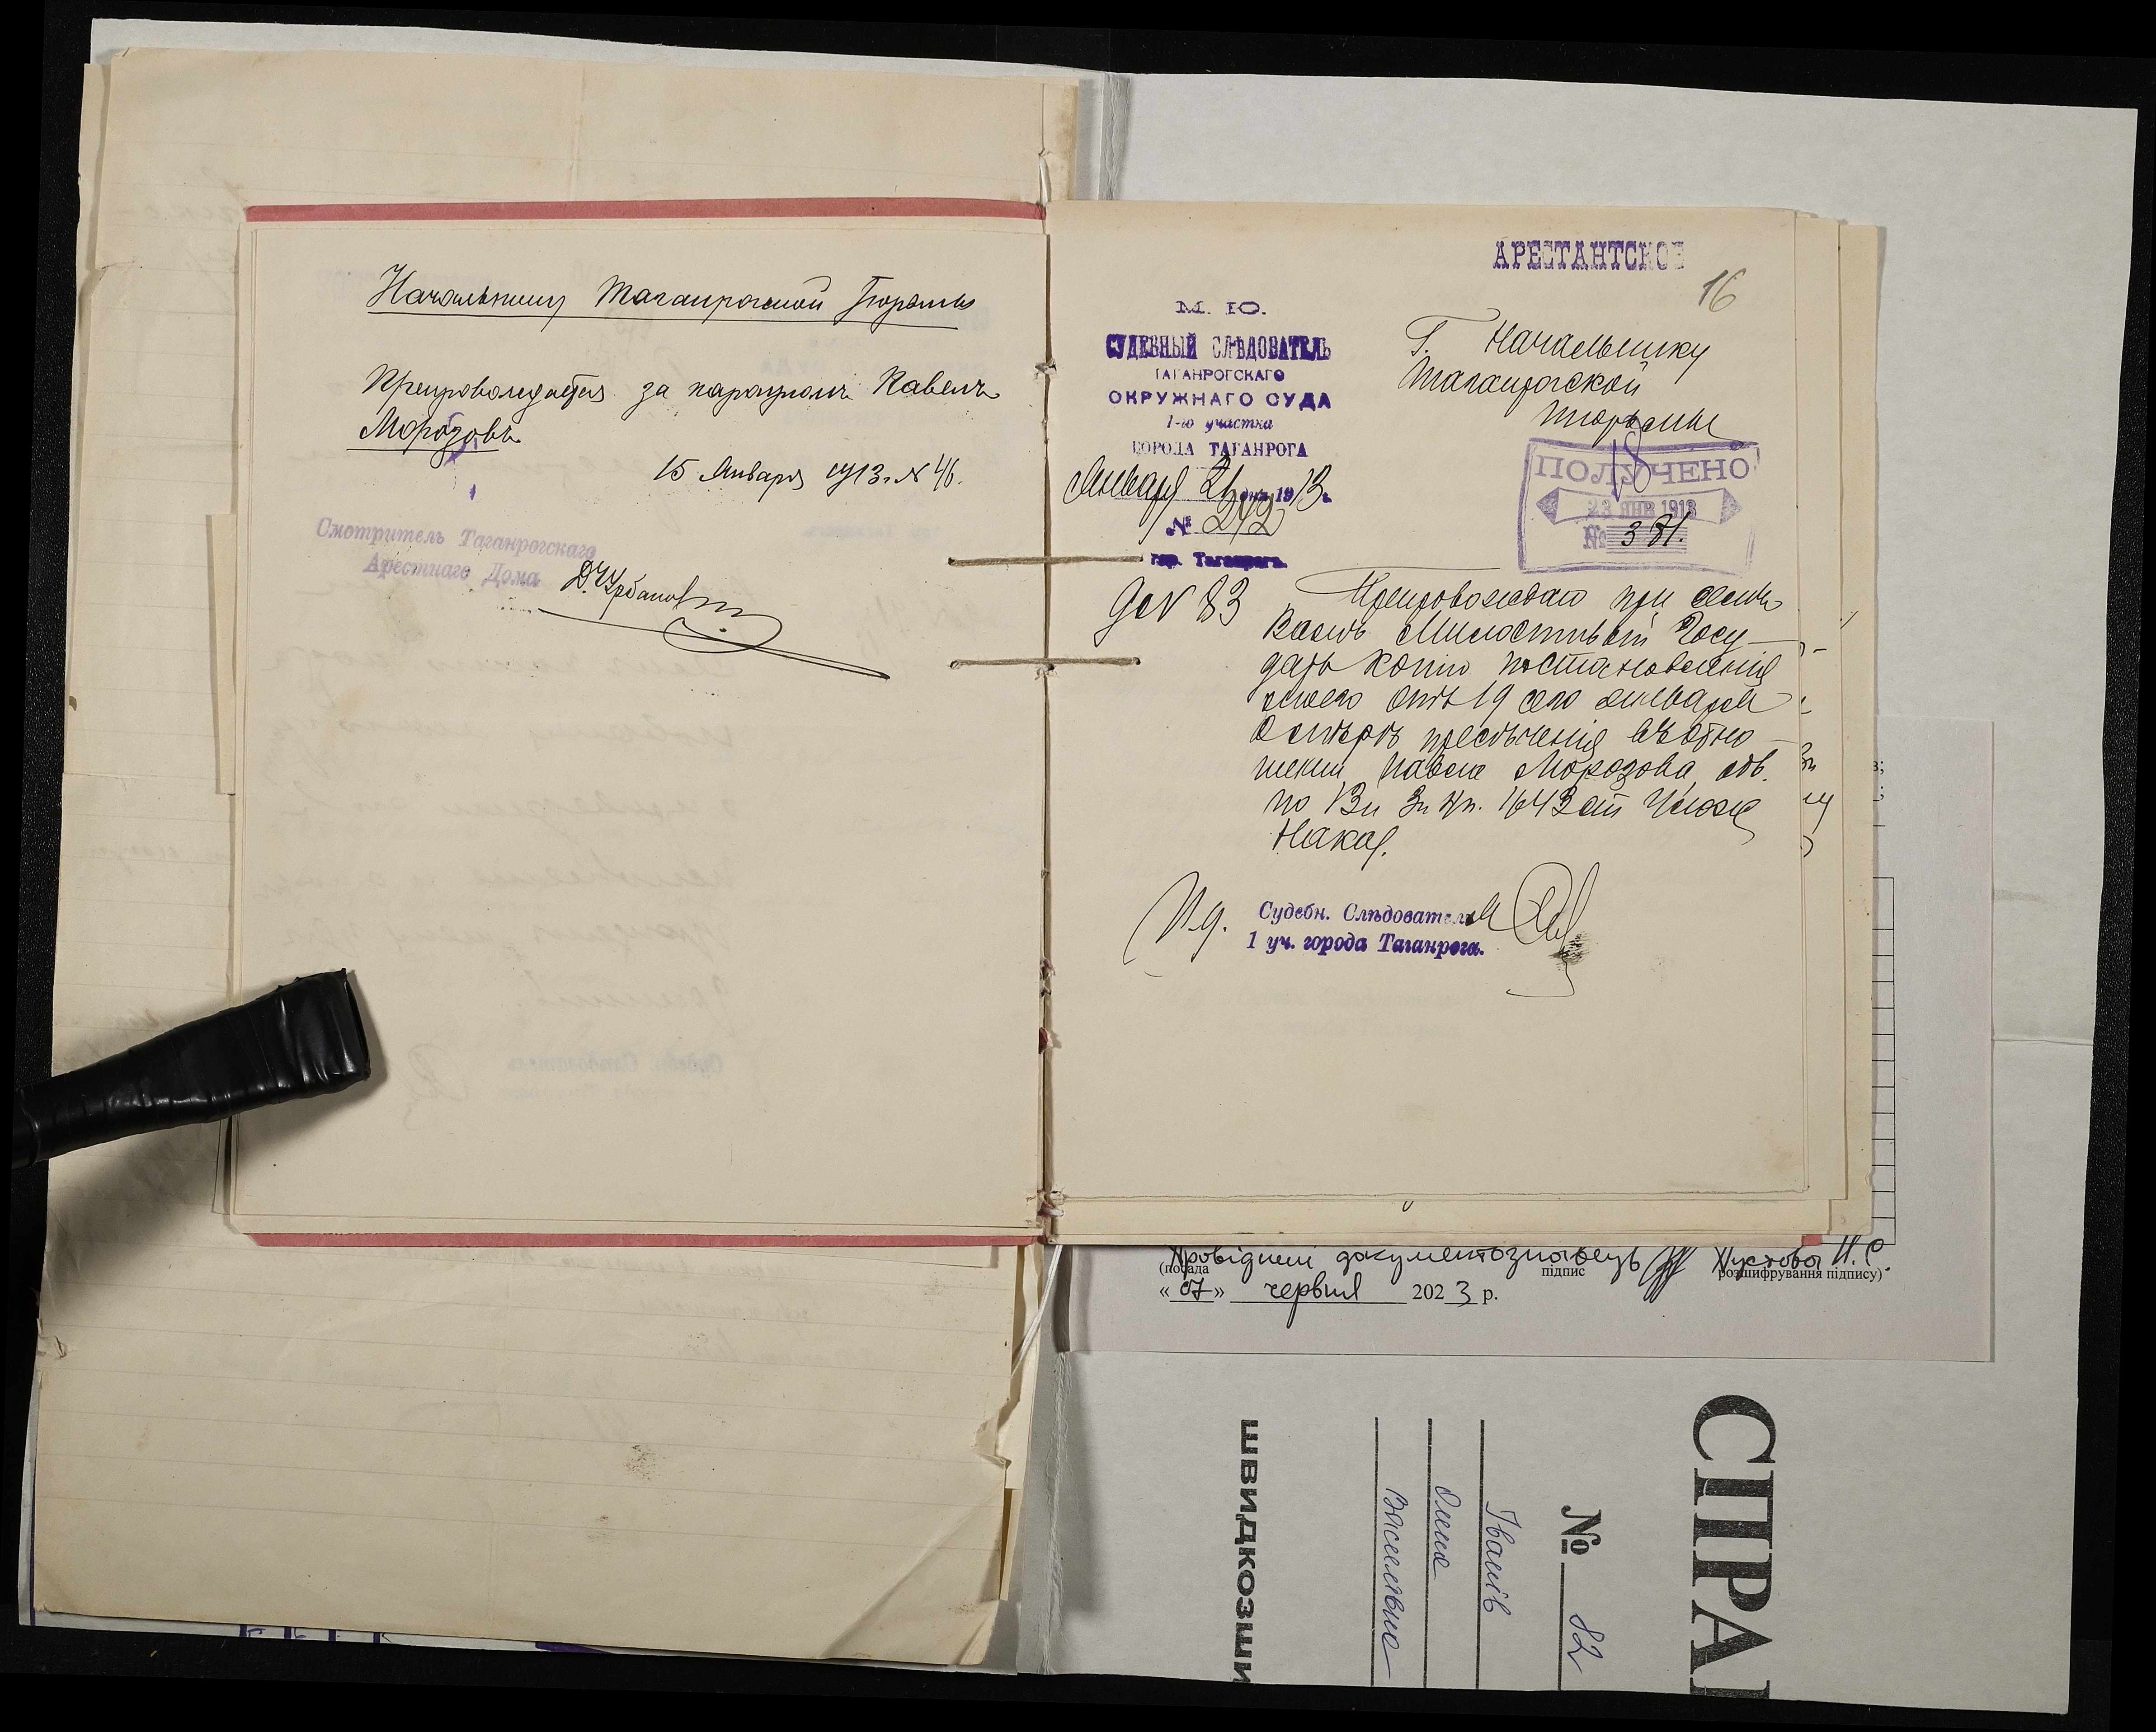 Начальнику Таганрогской Тюрьмы
Препровождается за караулом Павелъ
Морозовъ
15 Января 1913 г. № 46.
Смотритель Таганрогскаго
Арестнаго Дома
АРЕСТАНТСКОЕ
16
М. Ю.
СУДЕБНЫЙ СЛѢДОВАТЕЛЬ
ТАГАНРОГСКАГО
ОКРУЖНАГО СУДА
1-го участка
ГОРОДА ТАГАНРОГА
Января 21 дня 1913 г.
№ 242
гор. Таганрогъ.
Г. Начальнику
Таганрогской
тюрьмы
18
ПОЛУЧЕНО
23 ЯНВ 1913
№ 381.
83
Препровождаю при семъ
Вамъ Милостивый Госу-
дарь копію постановленія
моего отъ 19 сего января
о мѣрѣ пресѣченія въ отно-
шеніи Павла Морозова, обв.
по 13 и 3 ч. 1643 ст Улож
Наказ.
И.д. Судебн. Слѣдователя
1 уч. города Таганрога.
Провідний документознавець Пустова Н.С.
(посада підпис розшифрування підпису)
« 07 » червня 2023 р.
СПРА
№ 82
Іванів
Олена
Василівна
ШВИДКОЗШИ